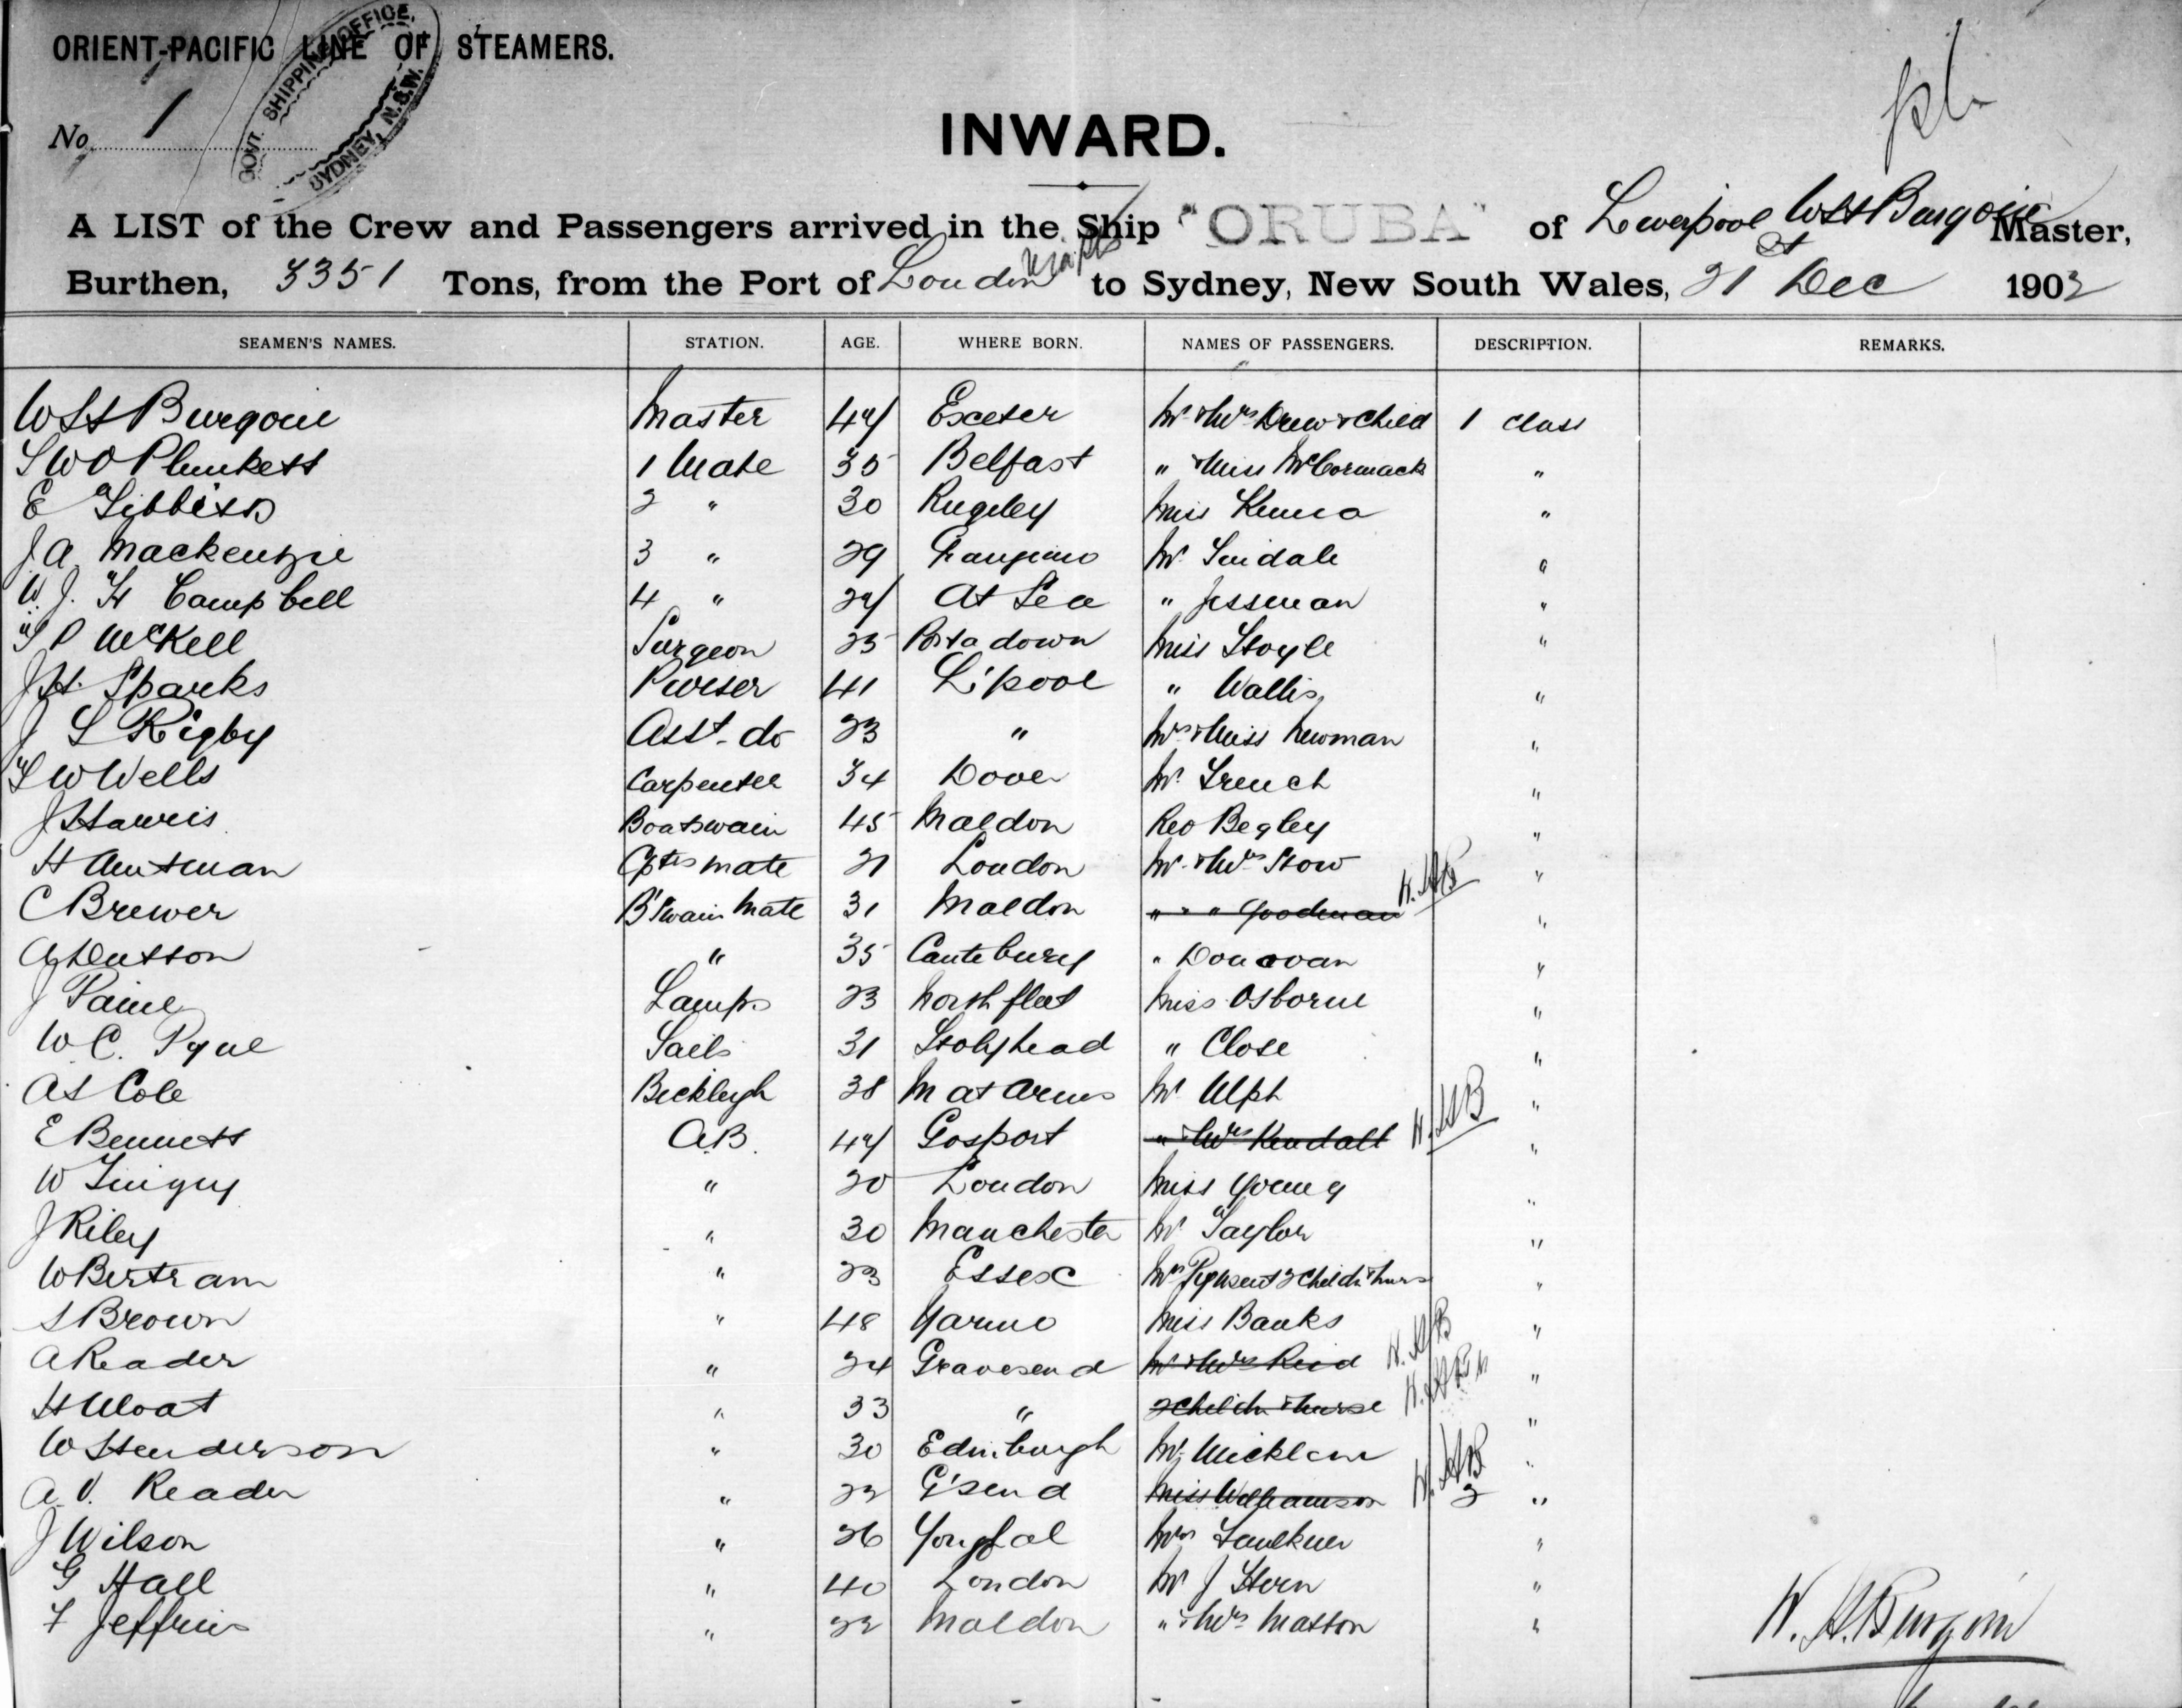 ORIENT-PACIFIC LINE OF STEAMERS.
GOVT. SHIPPING OFFICE, SYDNEY, N.S.W.
No. 1
INWARD.
A LIST of the Crew and Passengers arrived in the Ship "ORUBA" of Liverpool W H Burgoine Master,
Burthen, 3351 Tons, from the Port of London to Sydney, New South Wales, 21st Dec 1902
SEAMEN'S NAMES. STATION. AGE. WHERE BORN. NAMES OF PASSENGERS. DESCRIPTION. REMARKS.
W H Burgoine Master 44 Exeter Mr & Mrs Drew & Child 1 class
Plunkett 1 Mate 35 Belfast " & Miss McCormack "
E 2 " 30 Rugeley Miss "
J A Mackenzie 3 " 29 Mr "
W. J. H Campbell 4 " 24 At Sea " Jessman "
McKell Surgeon 25 Portadown Miss Hoyle "
J H. Sparks Purser 41 L'pool " Wallis "
J S Rigby Asst. do 23 " Mrs & Miss Newman "
W Wells Carpenter 34 Dover Mr French "
J Harris Boatswain 45 Maldon Rev Begley "
H Amtman Cptrs mate 21 London Mr & Mrs How "
C Brewer B'Swain Mate 31 Maldon " " " Goodman W.HB "
A Dutton " 35 Cantebury " Donovan "
J Paine Lamps 23 Northfleet Miss Osborne "
W C. Pyne Sails 31 Holyhead " Close "
A S Cole Bickleigh 38 M at Arms Mr Ulph "
E Bennett A.B. 44 Gosport " & Mrs Kendall W.HB "
W " 20 London Miss Young "
J Riley " 30 Manchester Mr Taylor "
W Bertram " 23 Essex Mrs 2 Childn & nurse "
S Brown " 48 Yarmo Miss Banks "
A Reader " 24 Gravesend Mr & Mrs Reid W.HB "
H Moat " 33 " 2 Childn & nurse W.HB "
W Henderson " 30 Edinburgh Mr Micklem "
A. V. Reader " 22 G'send Miss Williamson W.HB 2 "
J Wilson " 26 Youghal Mrs Faulkner "
G Hall " 40 London Mr J Stern "
F Jeffries " 22 Maldon " & Mrs Matson "
W. H. Burgoine